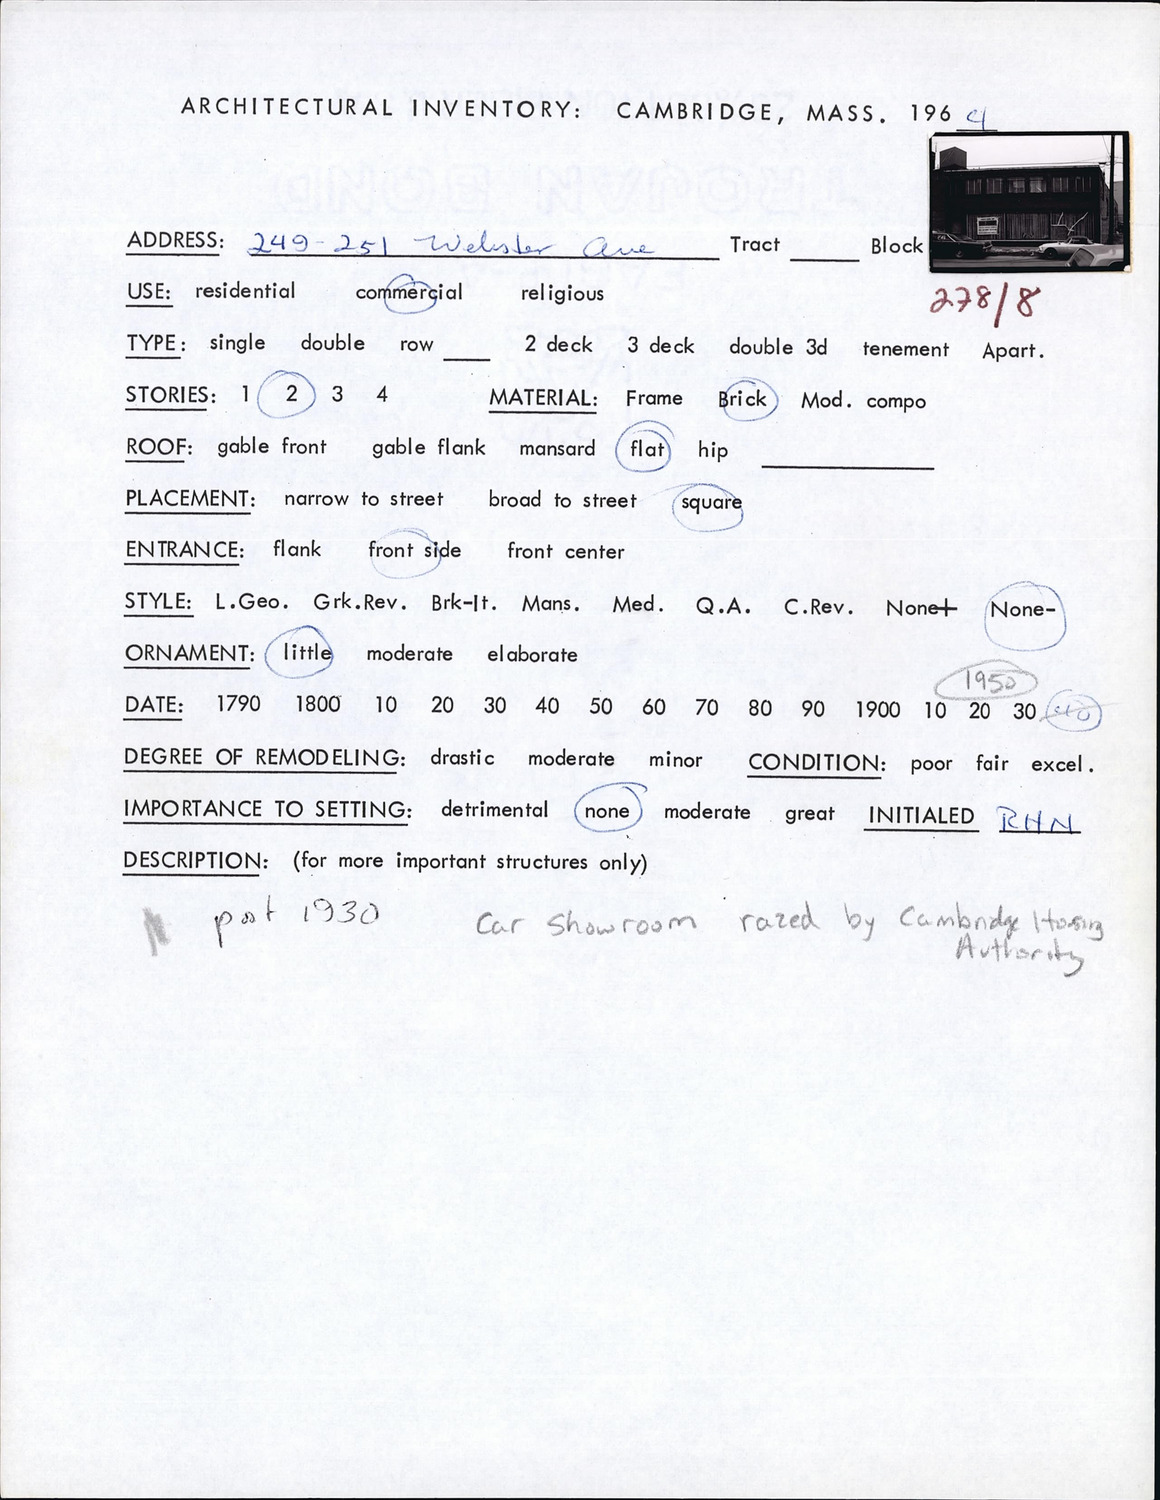 ARCHITECTURAL INVENTORY: CAMBRIDGE, MASS. 196 4
ADDRESS: 249-251 Webster Ave Tract ____ Block
278/8
USE: residential commercial religious
TYPE: single double row ____ 2 deck 3 deck double 3d tenement Apart.
STORIES: 1 2 3 4 MATERIAL: Frame Brick Mod. compo
ROOF: gable front gable flank mansard flat hip ____
PLACEMENT: narrow to street broad to street square
ENTRANCE: flank front side front center
STYLE: L.Geo. Grk.Rev. Brk-It. Mans. Med. Q.A. C.Rev. None+ None-
ORNAMENT: little moderate elaborate
1950
DATE: 1790 1800 10 20 30 40 50 60 70 80 90 1900 10 20 30 40
DEGREE OF REMODELING: drastic moderate minor CONDITION: poor fair excel.
IMPORTANCE TO SETTING: detrimental none moderate great INITIALED RHN
DESCRIPTION: (for more important structures only)
post 1930 Car Showroom razed by Cambridge Housing
Authority